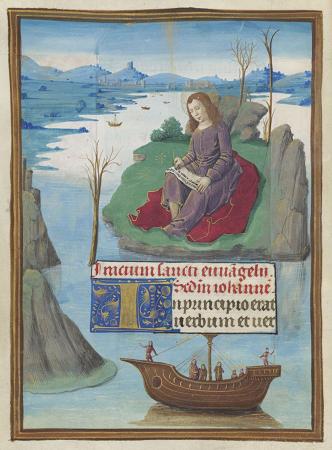 Inicium sancti euuāgelii
scd̄m iohannē
In principio erat
uerbum et uer